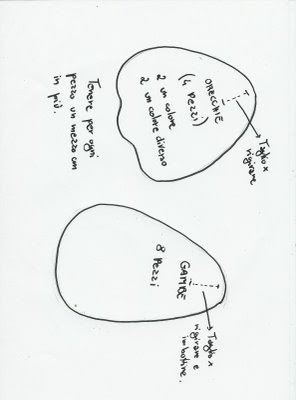 ORECCHIE
(4 pezzi)
2 un colore
2 un colore diverso
Taglio x
rigirare
Tenere per ogni
pezzo un mezzo cm
in più.
GAMBE
8 pezzi
Taglio x
rigirare e
imbottire.